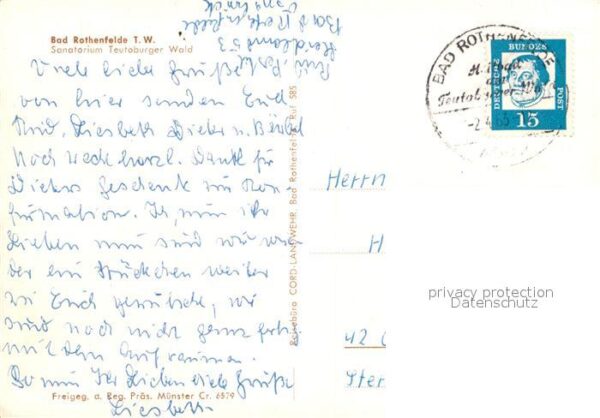 Bad Rothenfelde T. W.
Sanatorium Teutoburger Wald
Viele liebe Grüße
von hier senden Euch
Liesbeth Dieter u. Bärbel
Noch recht herzl. Dank für
Dieters Geschenk zur Kon-
firmation. Ja, nun ihr
Lieben nun sind wir wie-
der ein Stückchen weiter
zu Euch gerutscht, wir
sind noch nicht ganz fertig
mit dem Aufräumen.
So nun Ihr Lieben viele Grüße
Liesbeth
Freigeg. d. Reg. Präs. Münster Cr. 6579
Reisebüro CORD-LANDWEHR, Bad Rothenfelde, Ruf 585
BAD ROTHENFELDE
DEUTSCHE BUNDESPOST
15
Herrn
H
42 O
Ster
privacy protection
Datenschutz